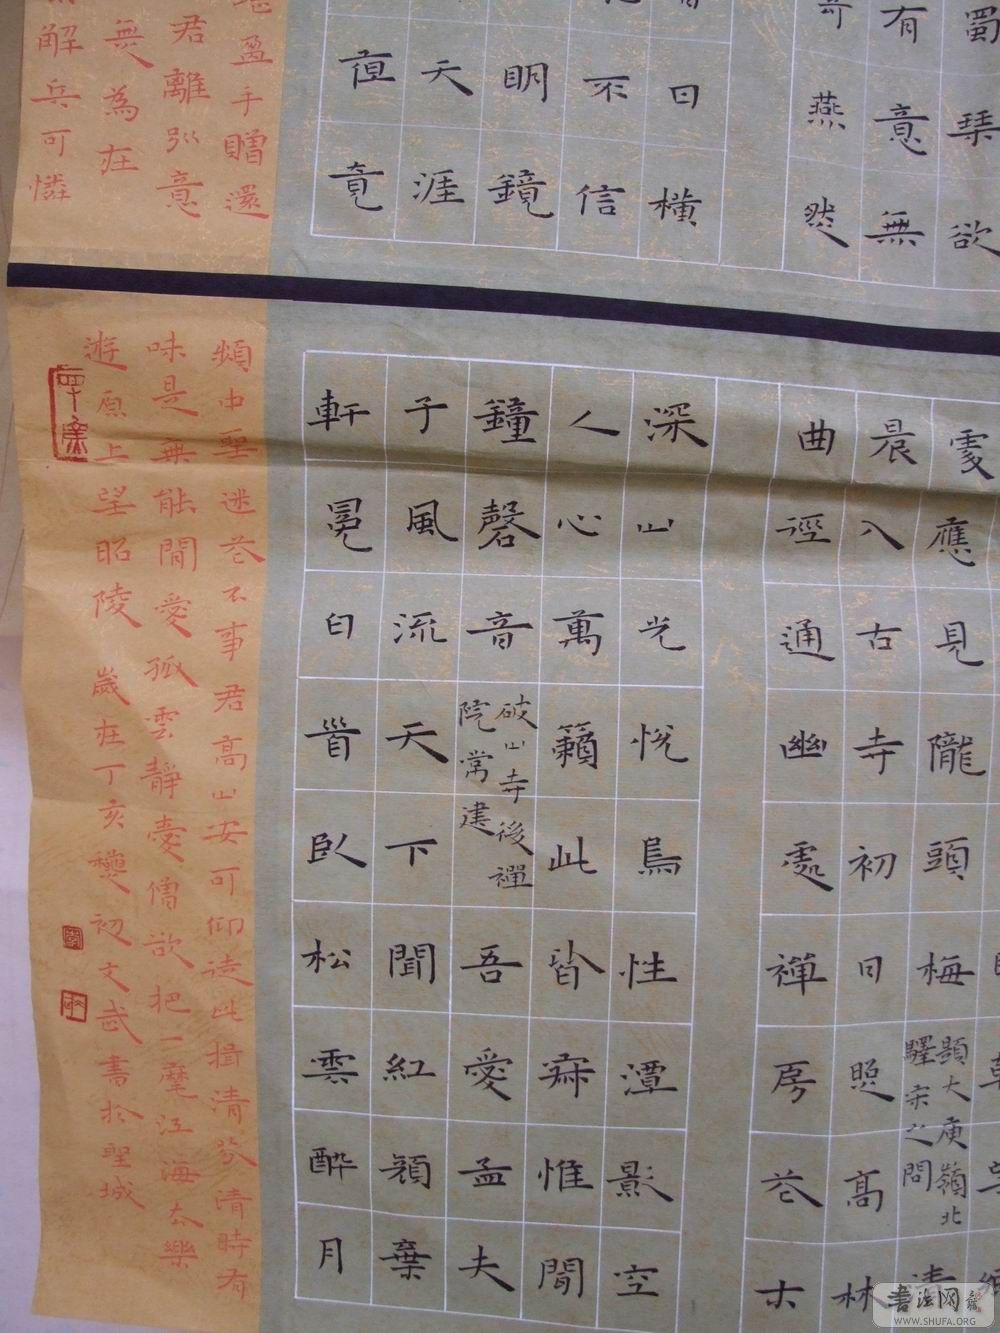 蜀琴欲
有意無
燕然
日橫
不信
明鏡
天涯
亱竟
盈手贈還
君離意
無為在
解兵可憐
處應見隴頭梅
題大庾嶺北
驛宋之問
清
晨入古寺初日照高林
曲徑通幽處禪房花木
深山光悅鳥性潭影空
人心萬籟此皆寂惟聞
鐘磬音
破山寺後禪
院常建
吾愛孟夫
子風流天下聞紅顏棄
軒冕白首臥松雲醉月
頻中聖迷花不事君高山安可仰徒此揖清芬清時有
味是無能閒愛孤雲靜愛僧欲把一麾江海去樂
遊原上望昭陵 歲在丁亥穐初文武書於聖城
書法网
WWW.SHUFA.ORG